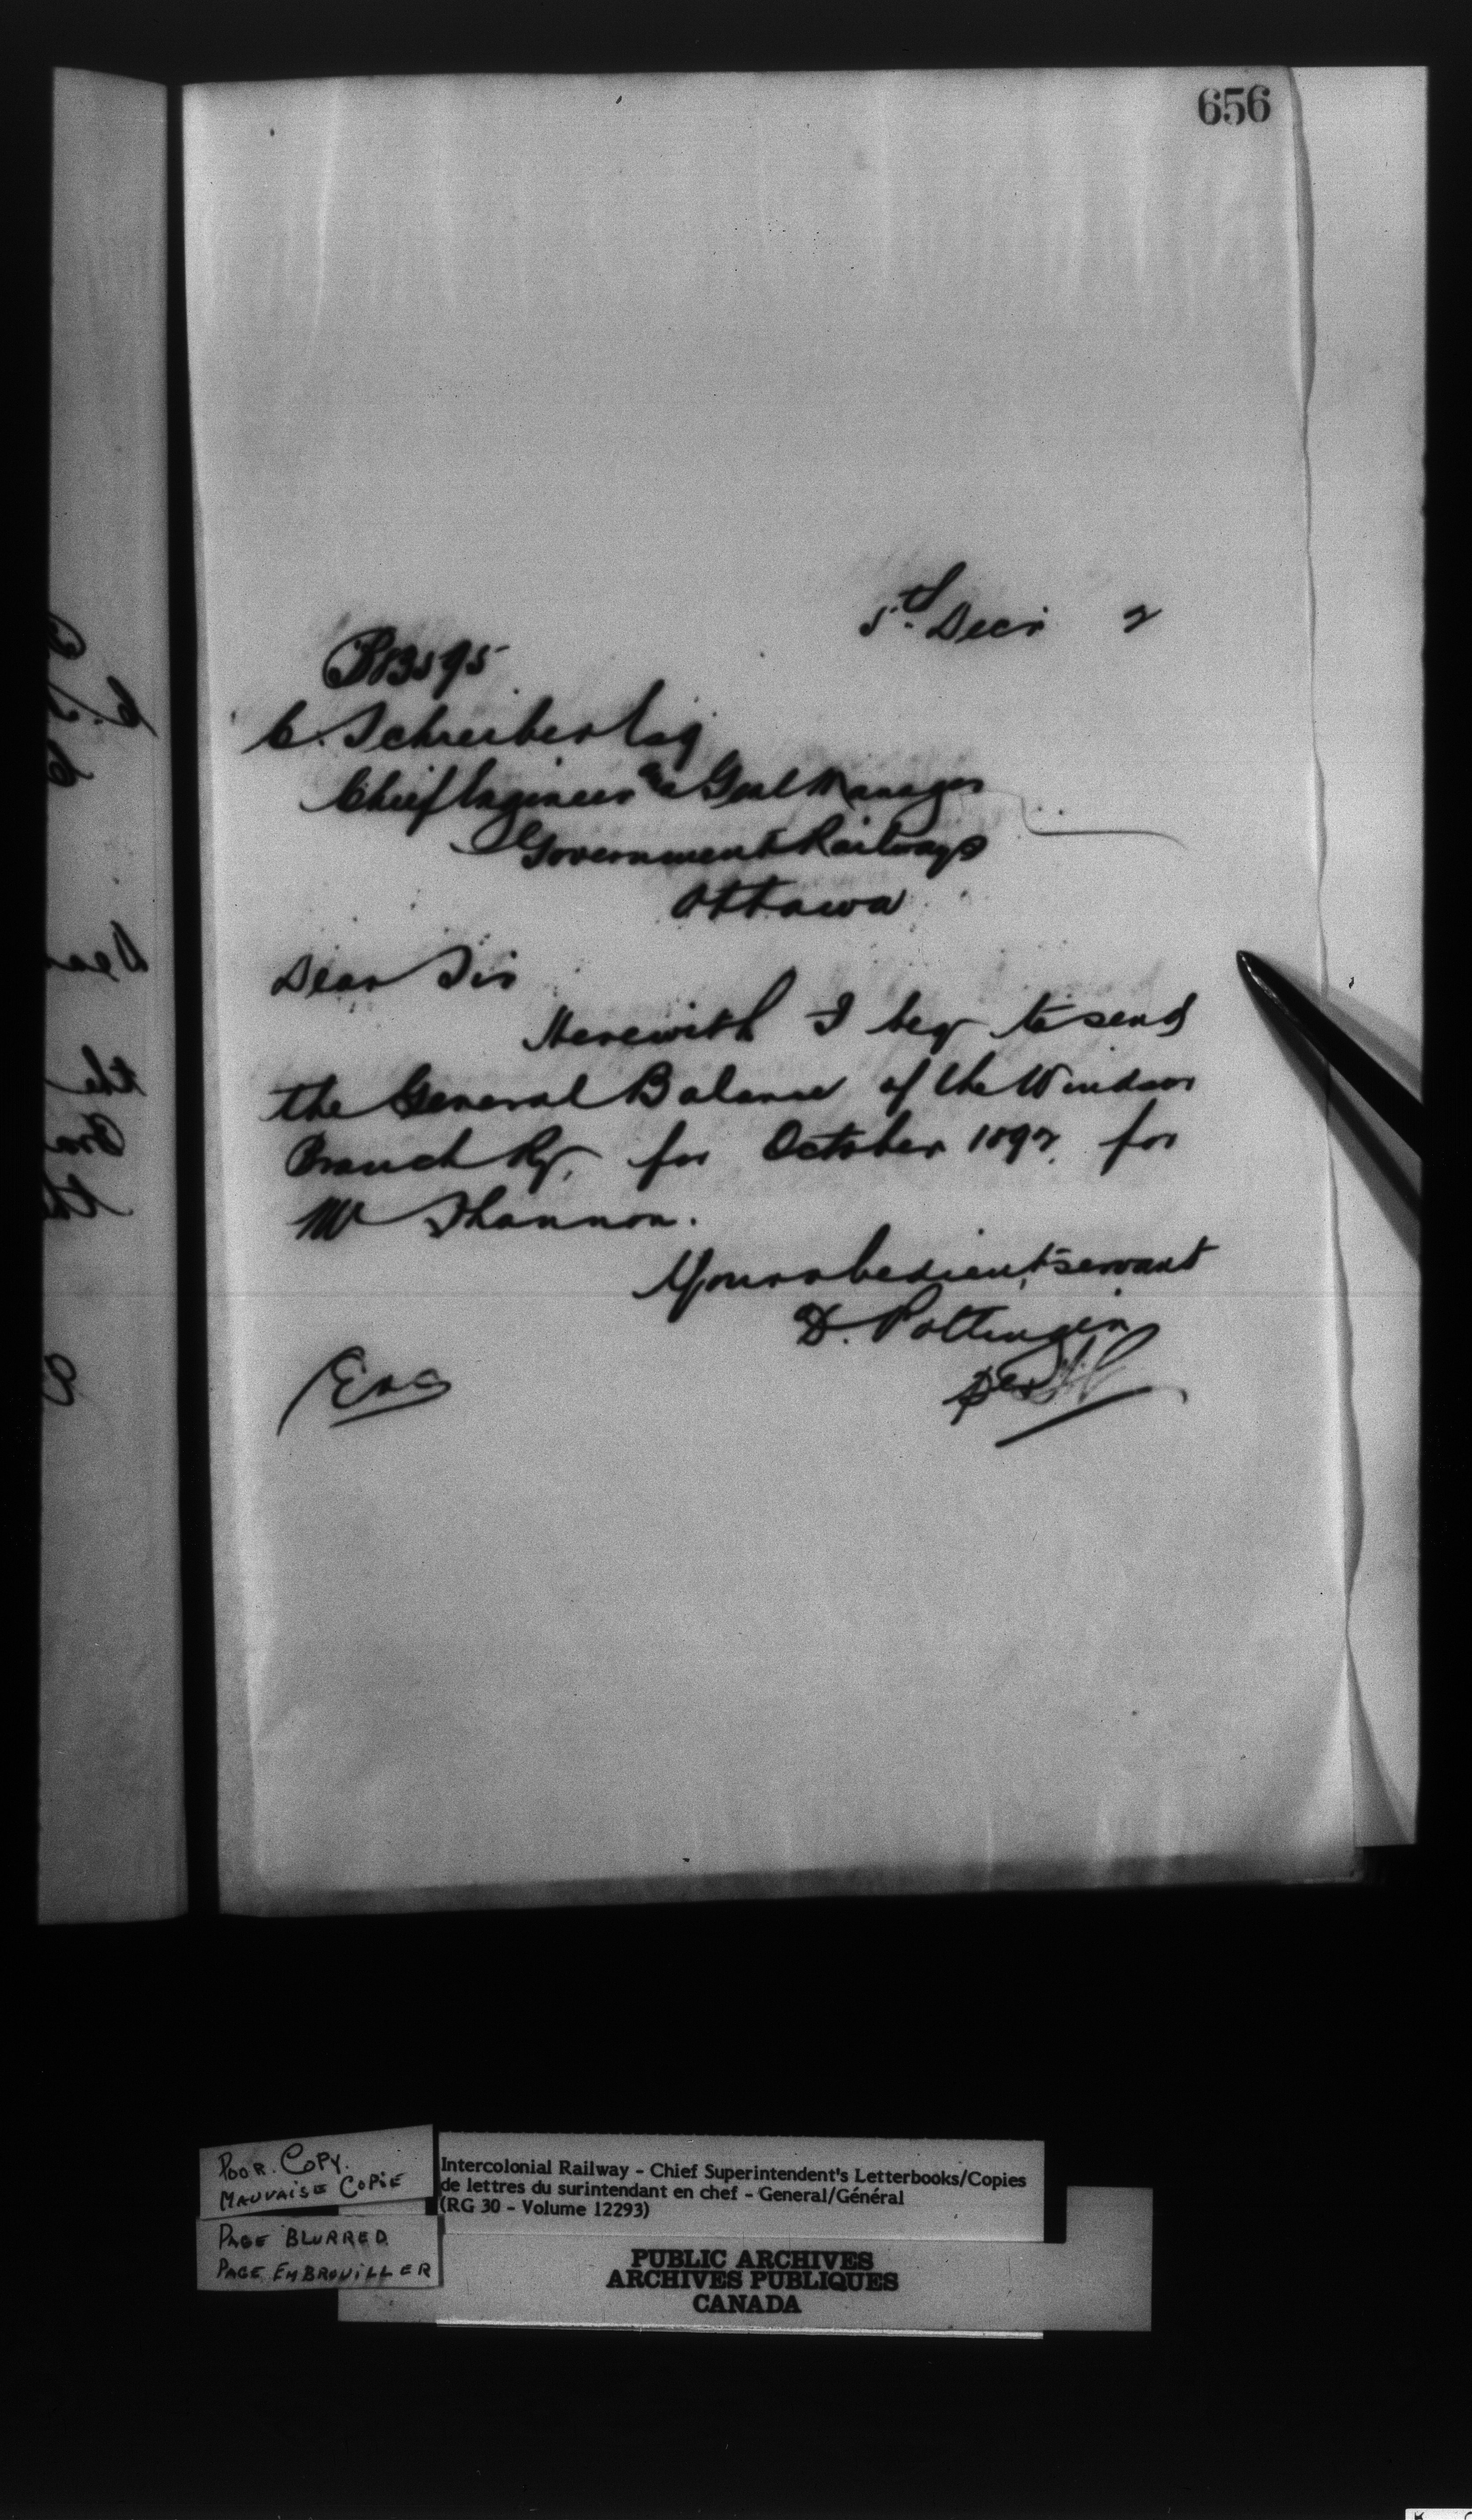 656
5th Decr 2
P13595
C. Schreiber Esq
Chief Engineer & Genl Manager
Government Railways
Ottawa
Dear Sir
Herewith I beg to send
the General Balance of the Windsor
Branch Ry. for October 1892 for
Mr Shannon.
Your obedient servant
D. Pottinger
per
Enc
POOR COPY.
MAUVAISE COPIE
PAGE BLURRED
PAGE EMBROUILLER
Intercolonial Railway - Chief Superintendent's Letterbooks/Copies
de lettres du surintendant en chef - General/Général
(RG 30 - Volume 12293)
PUBLIC ARCHIVES
ARCHIVES PUBLIQUES
CANADA